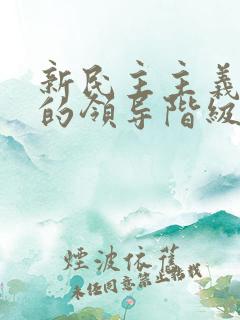 新民主主義
的領导階級
煙波依舊
未任同意禁止轉载